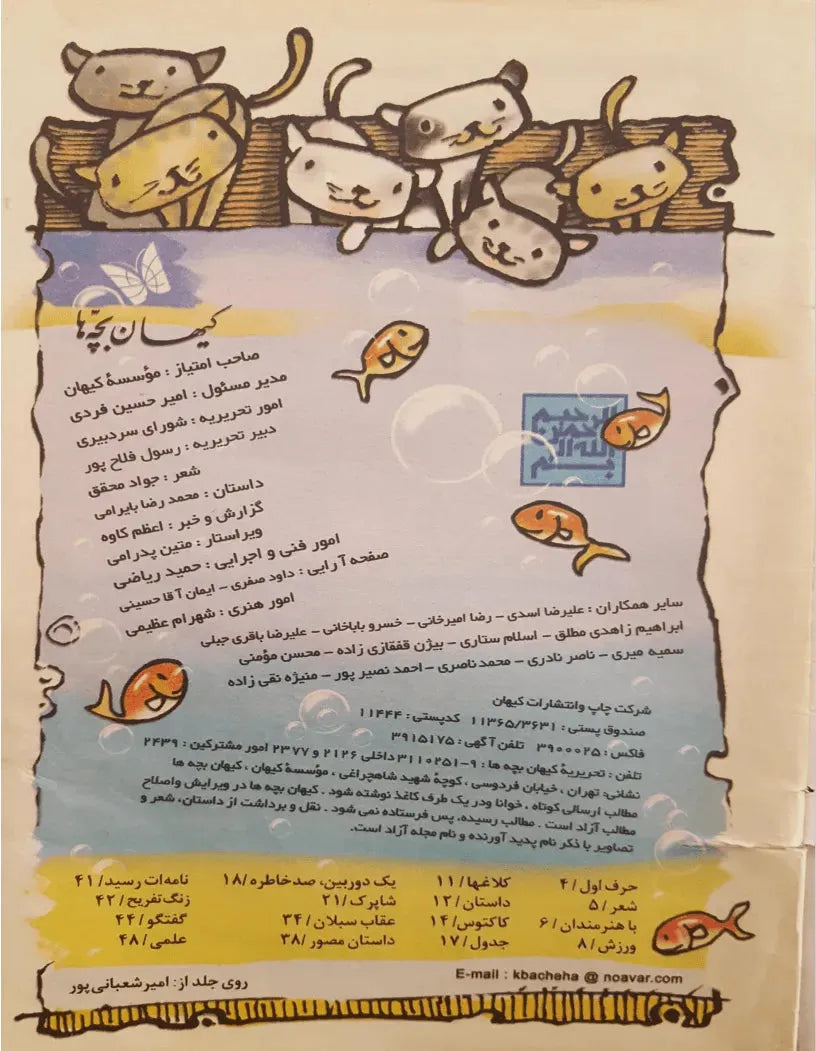 کیهان بچه‌ها
صاحب امتیاز : مؤسسهٔ کیهان
مدیر مسئول : امیر حسین فردی
امور تحریریه : شورای سردبیری
دبیر تحریریه : رسول فلاح پور
شعر : جواد محقق
داستان : محمد رضا بایرامی
گزارش و خبر : اعظم کاوه
ویراستار : متین پدرامی
امور فنی و اجرایی : حمید ریاضی
صفحه آرایی : داود صفری – ایمان آقا حسینی
امور هنری : شهرام عظیمی
بسم الله الرحمن الرحیم
سایر همکاران : علیرضا اسدی – رضا امیرخانی – خسرو باباخانی – علیرضا باقری جبلی
ابراهیم زاهدی مطلق – اسلام ستاری – بیژن قفقازی زاده – محسن مؤمنی
سمیه میری – ناصر نادری – محمد ناصری – احمد نصیر پور – منیژه نقی زاده
شرکت چاپ وانتشارات کیهان
صندوق پستی : ۱۱۳۶۵/۳۶۳۱ کدپستی : ۱۱۴۴۴
فاکس : ۳۹۰۰۰۲۵ تلفن آگهی : ۳۹۱۵۱۷۵
تلفن : تحریریهٔ کیهان بچه ها : ۹-۳۱۱۰۲۵۱ داخلی ۲۱۲۶ و ۲۳۷۷ امور مشترکین : ۲۴۳۹
نشانی: تهران ، خیابان فردوسی ، کوچهٔ شهید شاهچراغی ، مؤسسهٔ کیهان ، کیهان بچه ها
مطالب ارسالی کوتاه ، خوانا ودر یک طرف کاغذ نوشته شود . کیهان بچه ها در ویرایش واصلاح
مطالب آزاد است . مطالب رسیده، پس فرستاده نمی شود . نقل و برداشت از داستان، شعر و
تصاویر با ذکر نام پدید آورنده و نام مجله آزاد است.
حرف اول /۴
شعر /۵
با هنرمندان /۶
ورزش /۸
کلاغها /۱۱
داستان /۱۲
کاکتوس /۱۴
جدول /۱۷
یک دوربین، صدخاطره /۱۸
شاپرک /۲۱
عقاب سبلان /۳۴
داستان مصور /۳۸
نامه‌ات رسید /۴۱
زنگ تفریح /۴۲
گفتگو /۴۴
علمی /۴۸
E-mail : kbacheha @ noavar.com
روی جلد از: امیرشعبانی پور